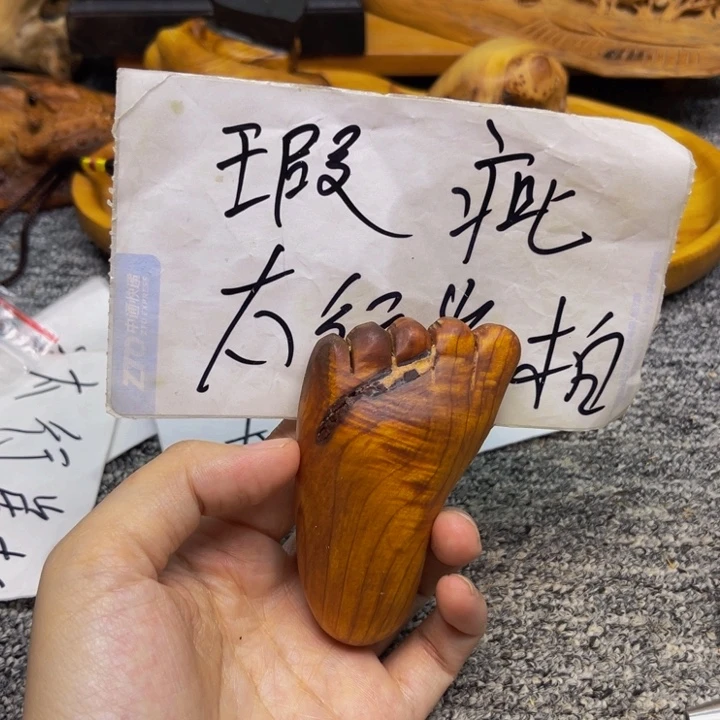 瑕 疵
太行崖柏
中通快递
太行崖